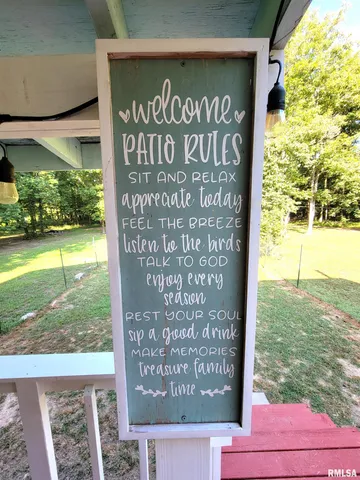 welcome
PATIO RULES
SIT AND RELAX
appreciate today
FEEL THE BREEZE
listen to the birds
TALK TO GOD
enjoy every
season
REST YOUR SOUL
sip a good drink
MAKE MEMORIES
treasure family
time
RMLSA